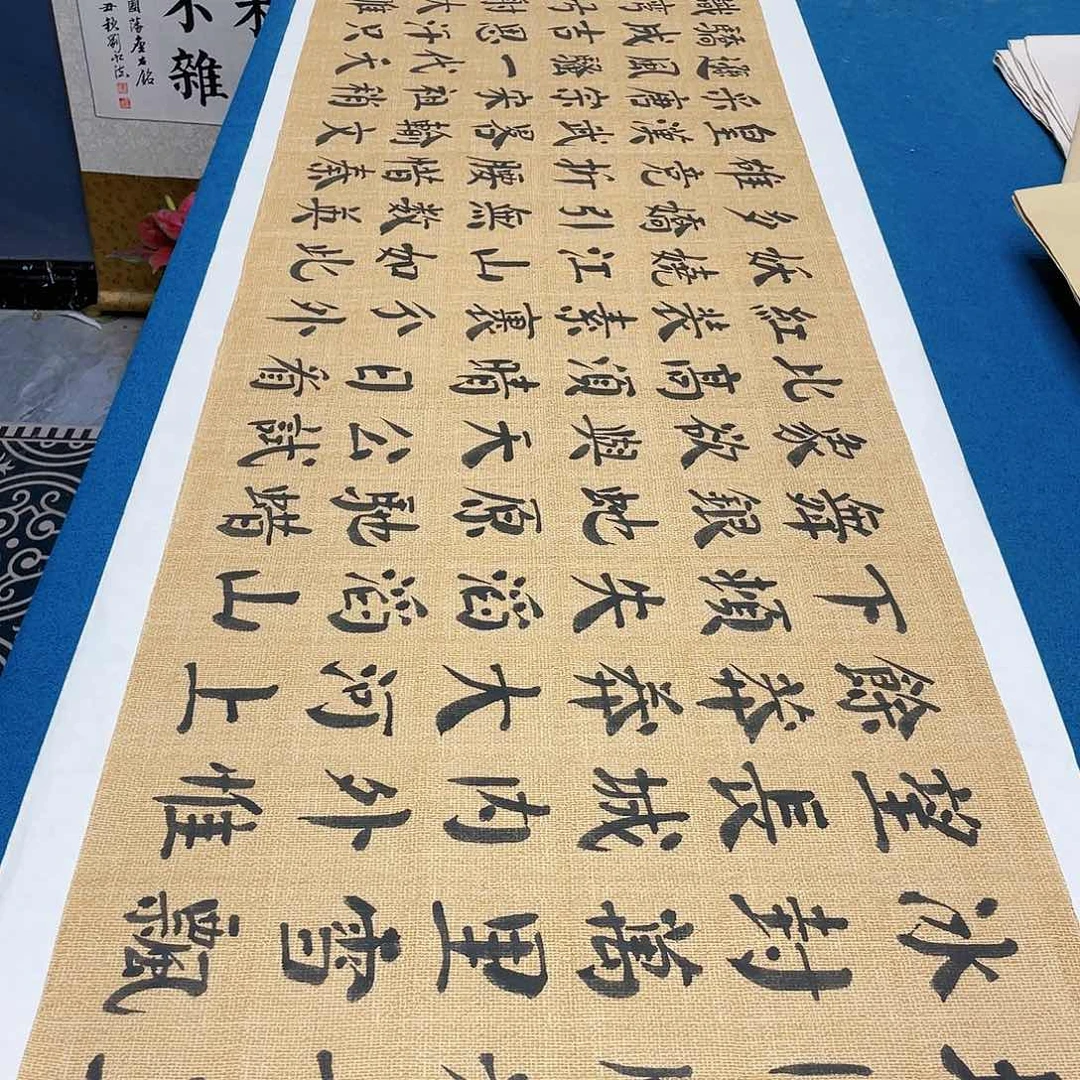 冰封萬里雪飄
望長城內外惟
餘莽莽大河上
下頓失滔滔山
舞銀蛇原馳蜡
象欲與天公試
比高須晴日看
紅裝素裹分外
妖嬈江山如此
多嬌引無數英
雄競折腰惜秦
皇漢武畧輸文
采唐宗宋祖稍
遜風騷一代天
驕成吉思汗只
識彎弓射大雕
不雜